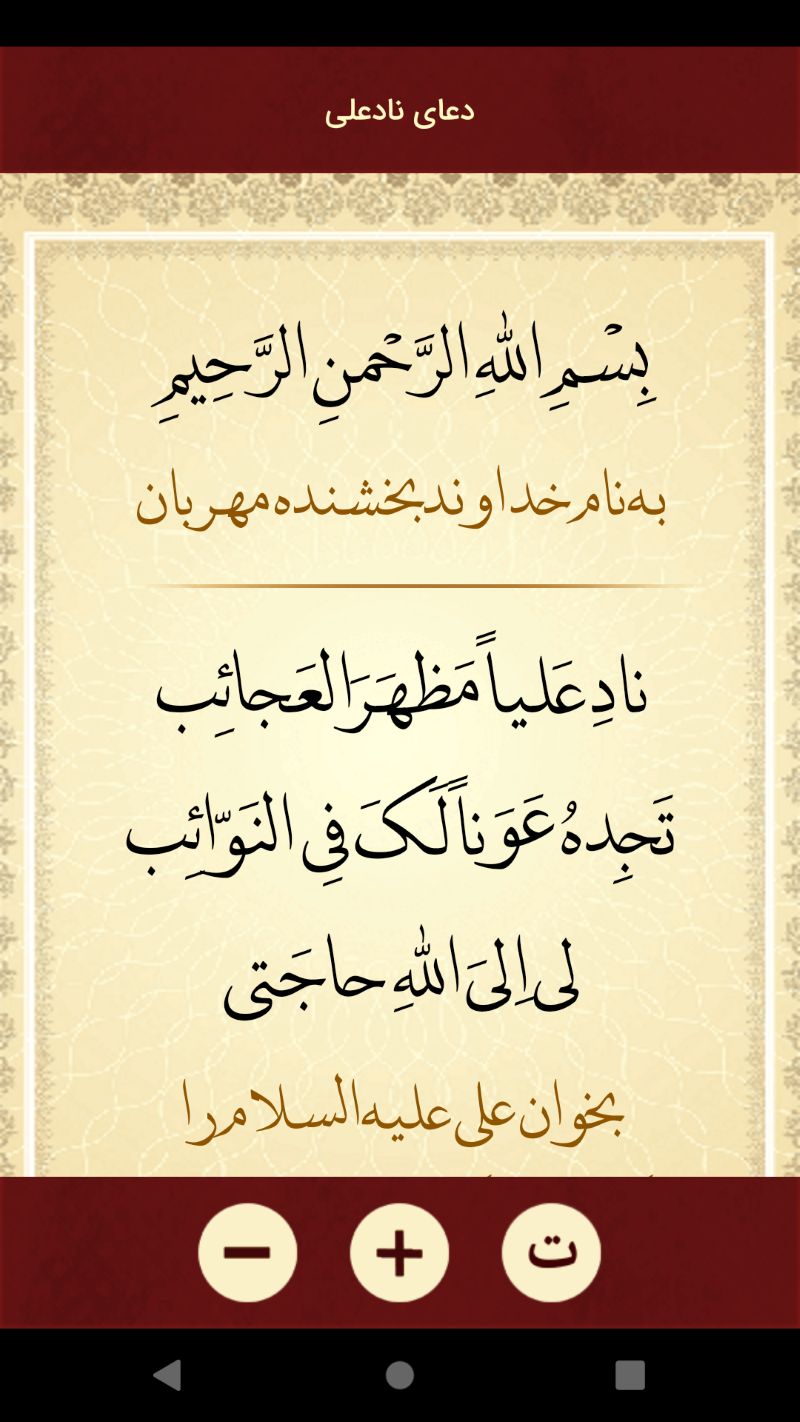 دعای نادعلی
بِسْمِ اللهِ الرَّحْمنِ الرَّحِیمِ
به نام خداوند بخشنده مهربان
نادِ عَلیاً مَظهَرَ العَجائِب
تَجِدهُ عَوَناً لَکَ فِی النَوّائِب
لی اِلیَ اللهِ حاجَتی
بخوان علی علیه السلام را
ت
+
−